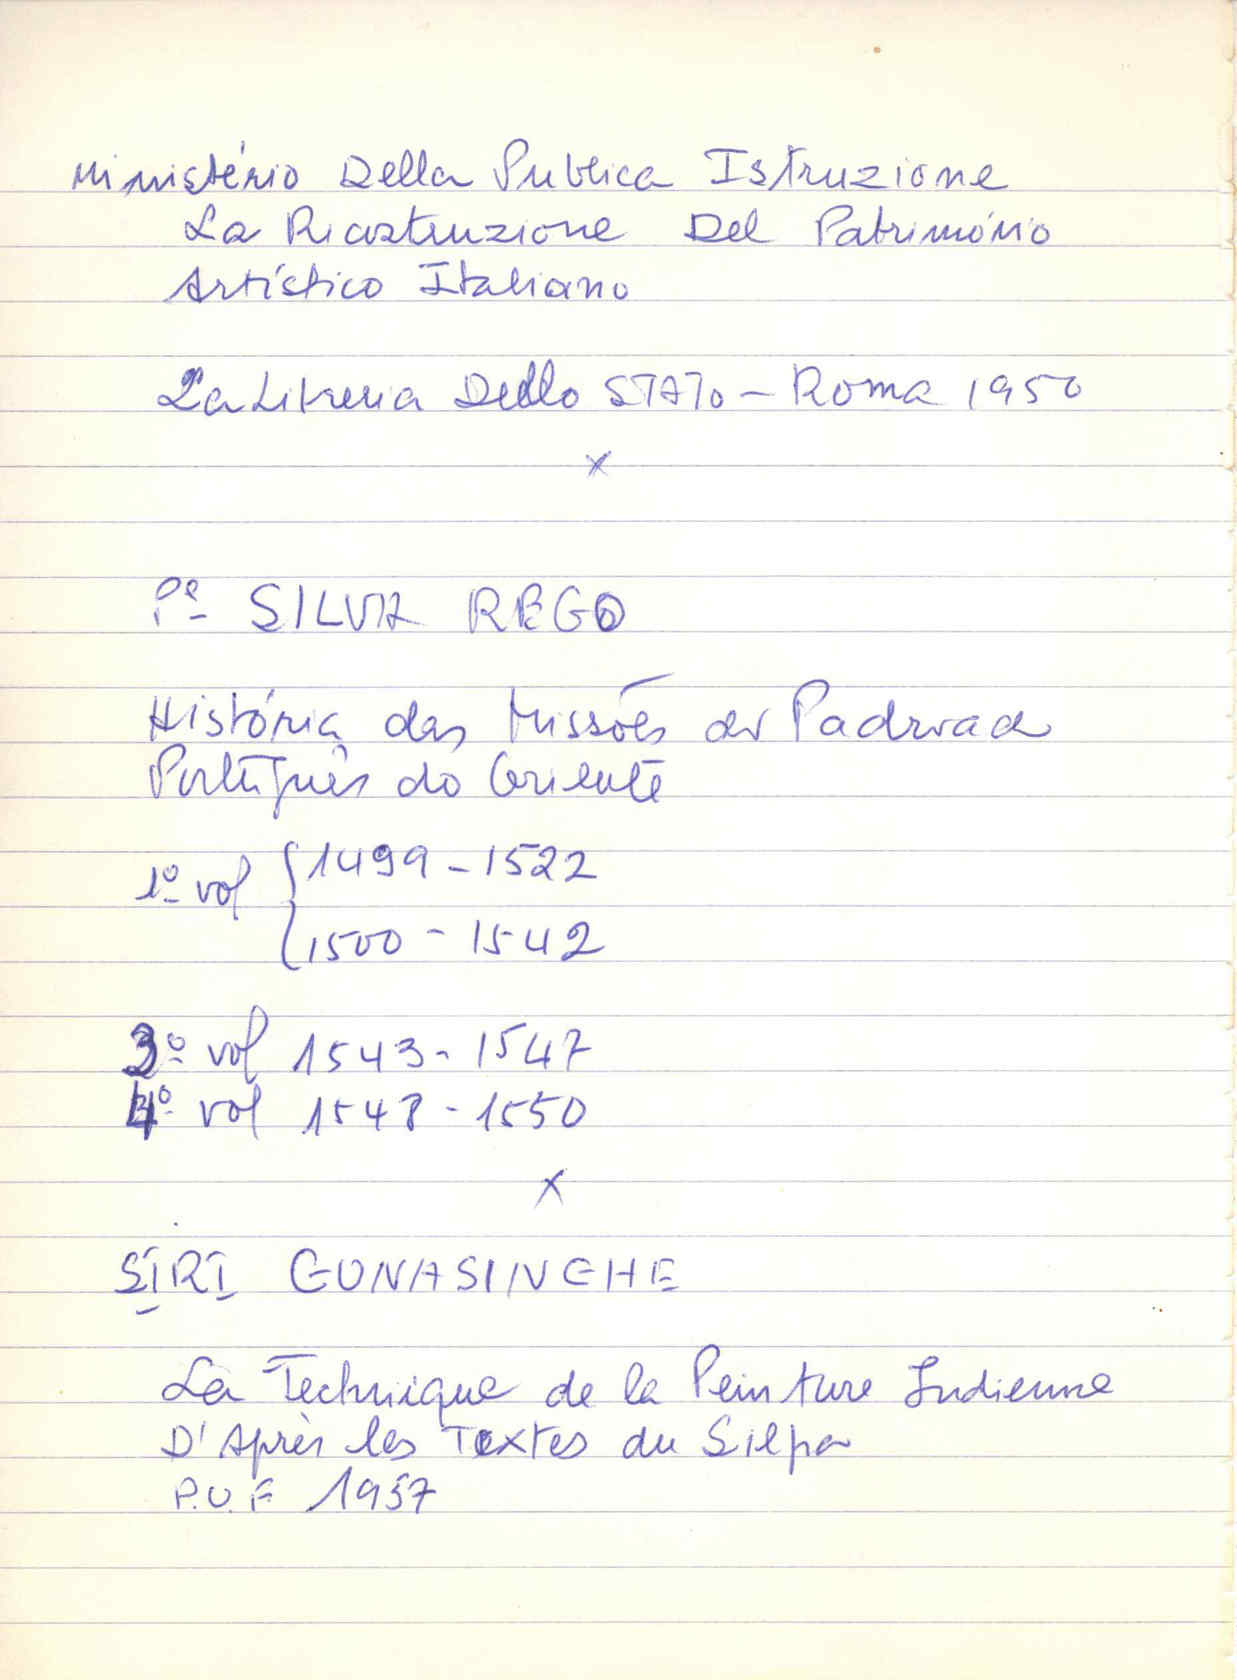 Ministério Della Publica Istruzione
La Ricostruzione Del Património
Artístico Italiano
La Libreria Dello STATO - Roma 1950
x
Pe SILVA REGO
História das Missões do Padroad
Português do Oriente
1º vol { 1499 - 1522
1500 - 1542
3º vol 1543 - 1547
4º vol 1548 - 1550
x
SIRI GUNASINGHE
La Technique de la Peinture Indienne
D'Après les Textes du Silpa
P.U.F 1957